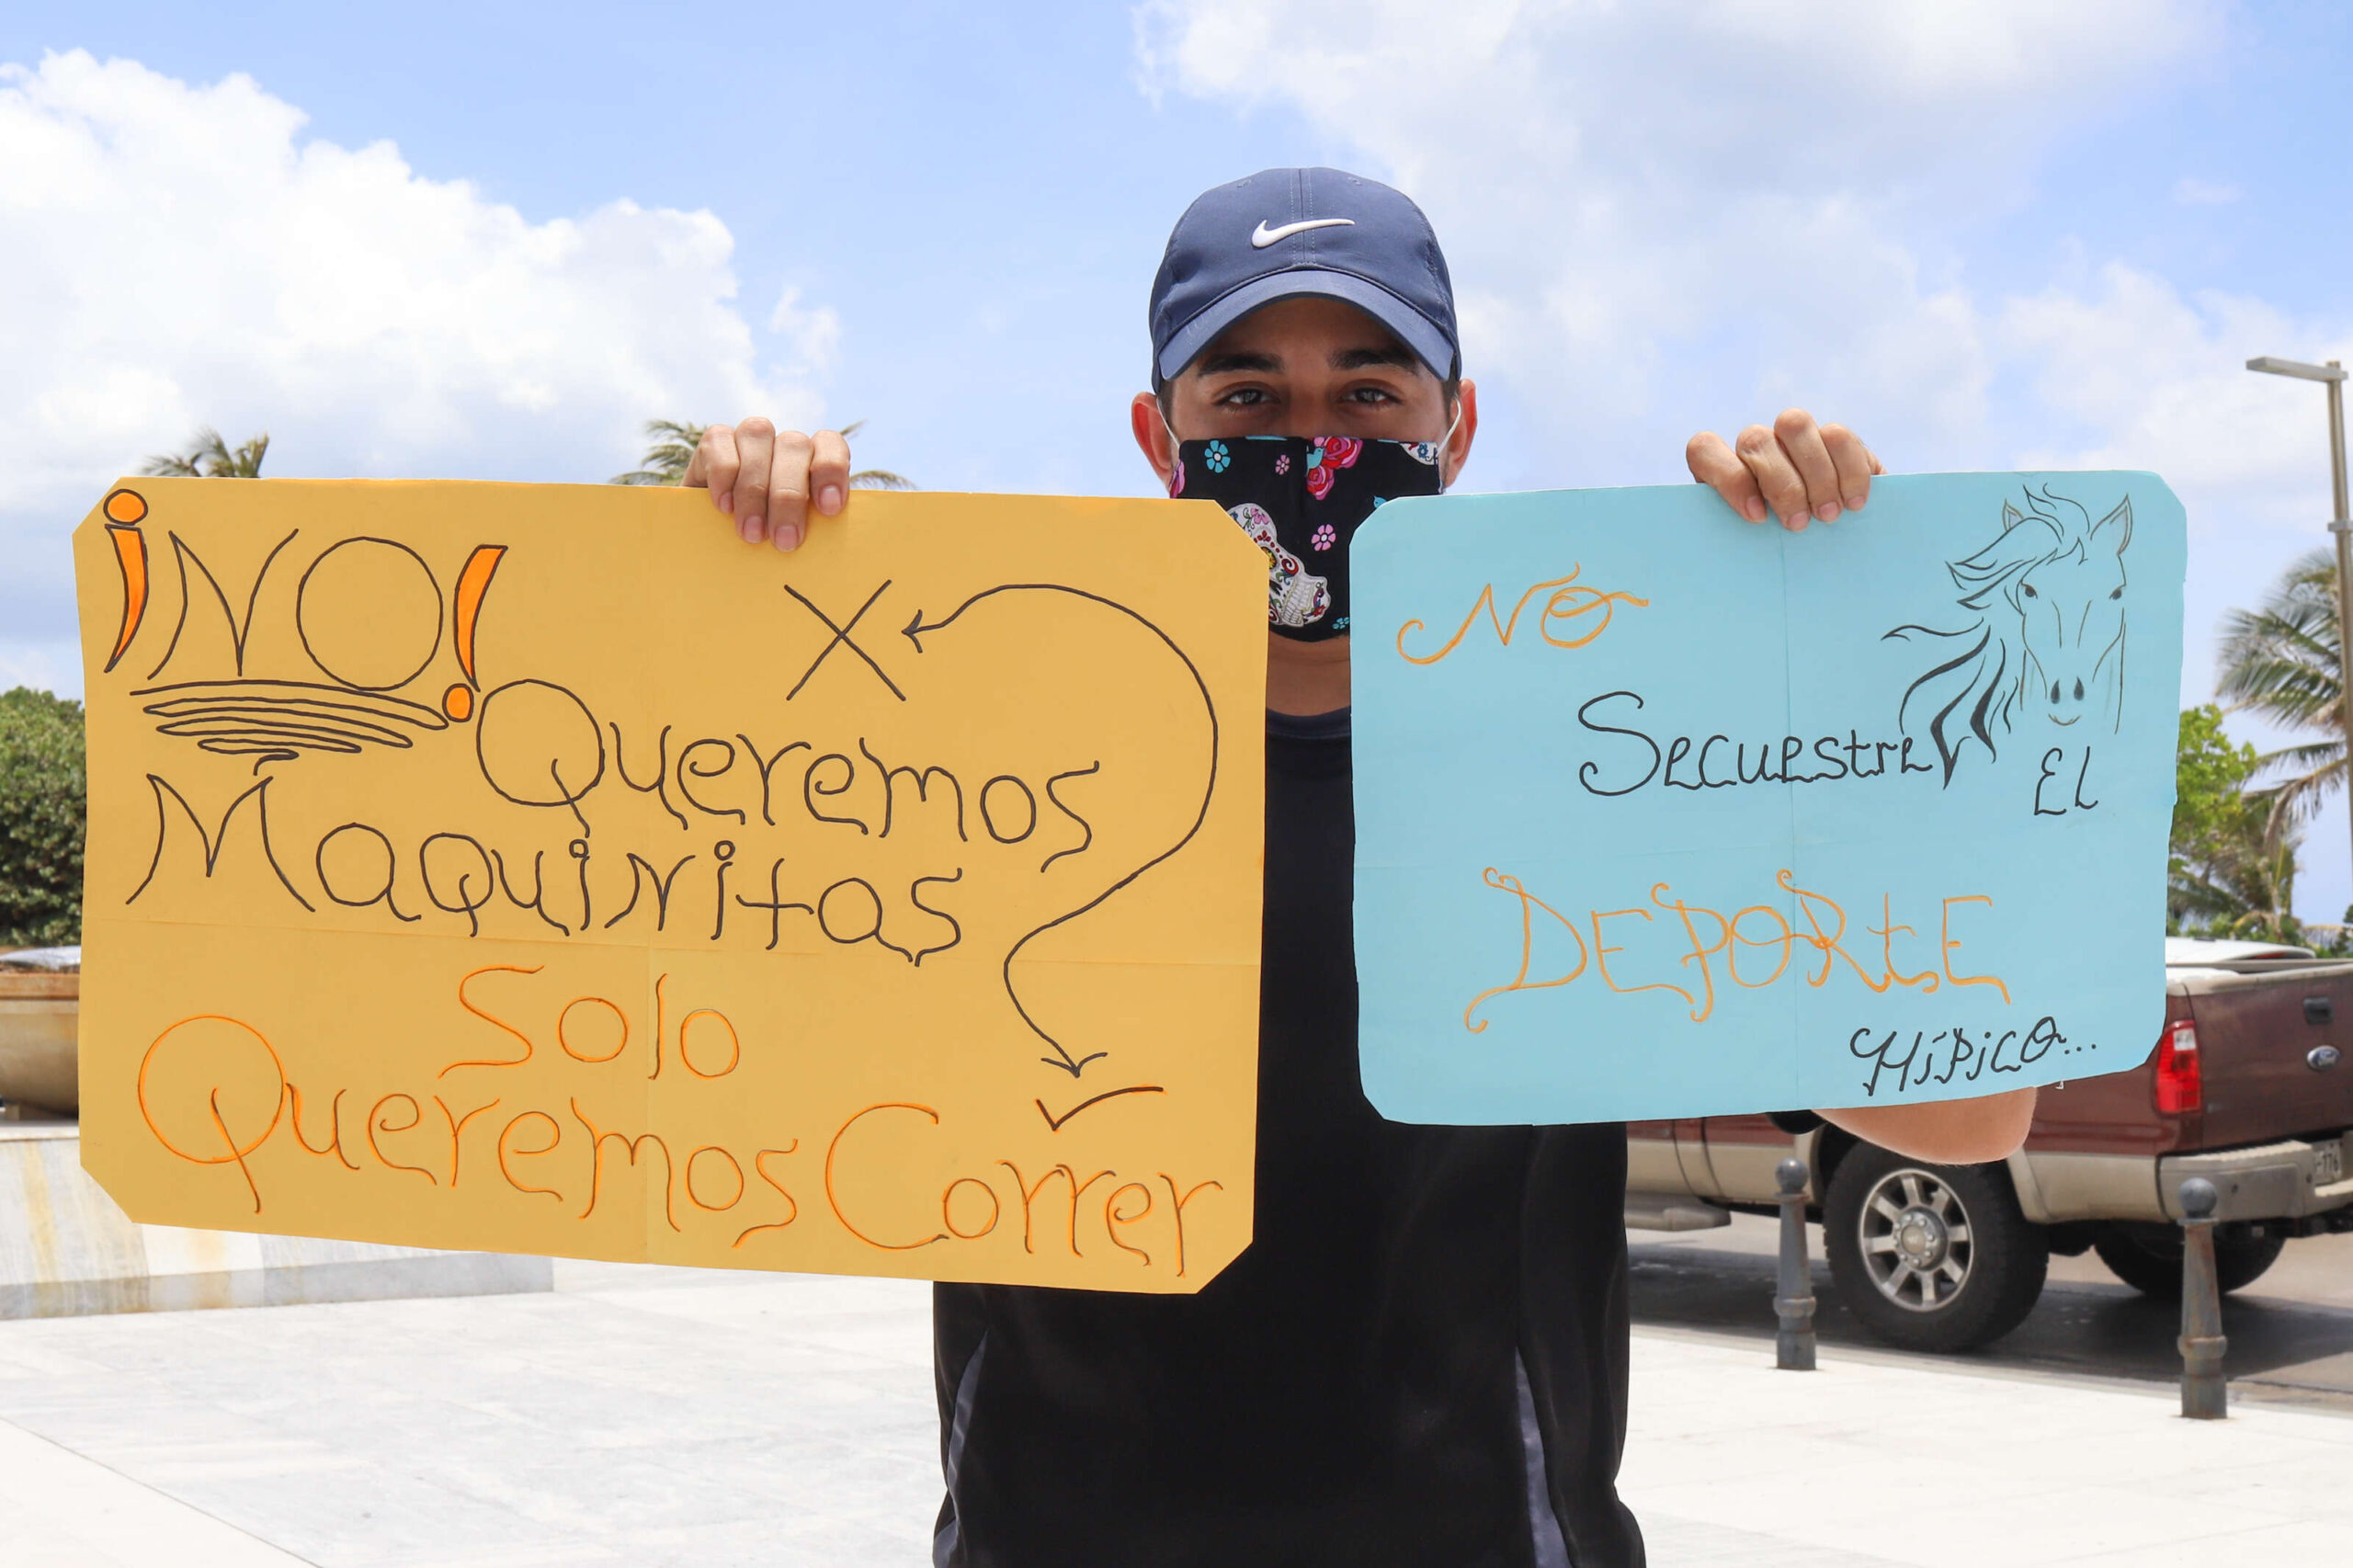 ¡NO! Queremos
Maquinitas
Solo
Queremos Correr
NO
Secuestre
El
DEPORtE
HíPiCO...
Ford